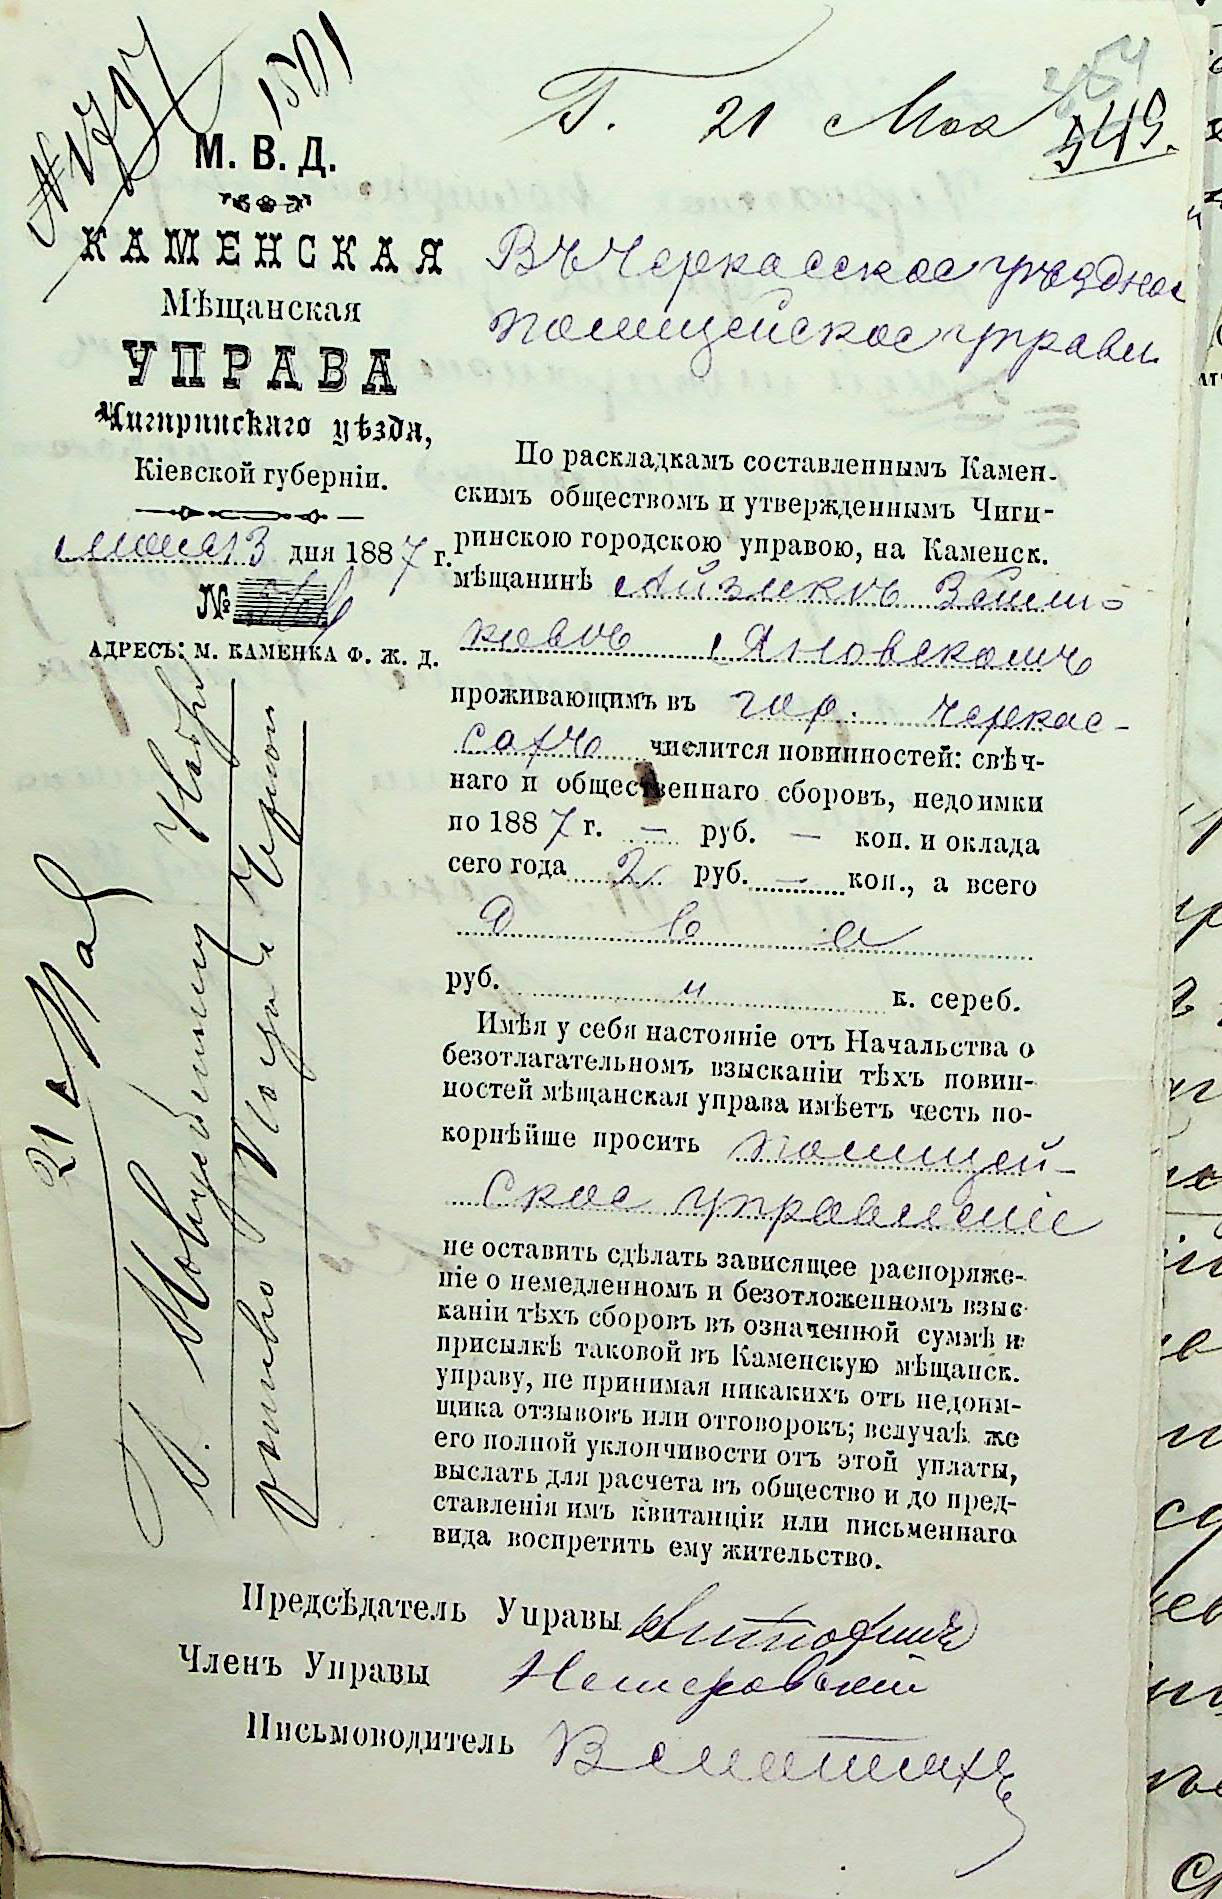 1501
П. 21 Мая
349.
М. В. Д.
КАМЕНСКАЯ
Мѣщанская
УПРАВА
Чигиринскаго уѣзда,
Кіевской губерніи.
13 дня 1887 г.
№
АДРЕСЪ: М. КАМЕНКА Ф. Ж. Д.
Въ Черкасское уѣздное
полицейское управл.
По раскладкамъ составленнымъ Камен-
скимъ обществомъ и утвержденнымъ Чиги-
ринскою городскою управою, на Каменск.
мѣщанинѣ Айзикѣ
Яновскомъ
проживающимъ въ гор. Черкас-
сахъ числится повинностей: свѣч-
наго и общественнаго сборовъ, недоимки
по 1887 г. — руб. — коп. и оклада
сего года 2 руб. — коп., а всего
два
руб. „ к. сереб.
Имѣя у себя настояніе отъ Начальства о
безотлагательномъ взысканіи тѣхъ повин-
ностей мѣщанская управа имѣетъ честь по-
корнѣйше просить полицей-
ское управленіе
не оставить сдѣлать зависящее распоряже-
ніе о немедленномъ и безотложенномъ взыс-
каніи тѣхъ сборовъ въ означенной суммѣ и
присылкѣ таковой въ Каменскую мѣщанск.
управу, не принимая никакихъ отъ недоим-
щика отзывовъ или отговорокъ; вслучаѣ же
его полной уклончивости отъ этой уплаты,
выслать для расчета въ общество и до пред-
ставленія имъ квитанціи или письменнаго
вида воспретить ему жительство.
Предсѣдатель Управы
Членъ Управы
Письмоводитель
21 Мая